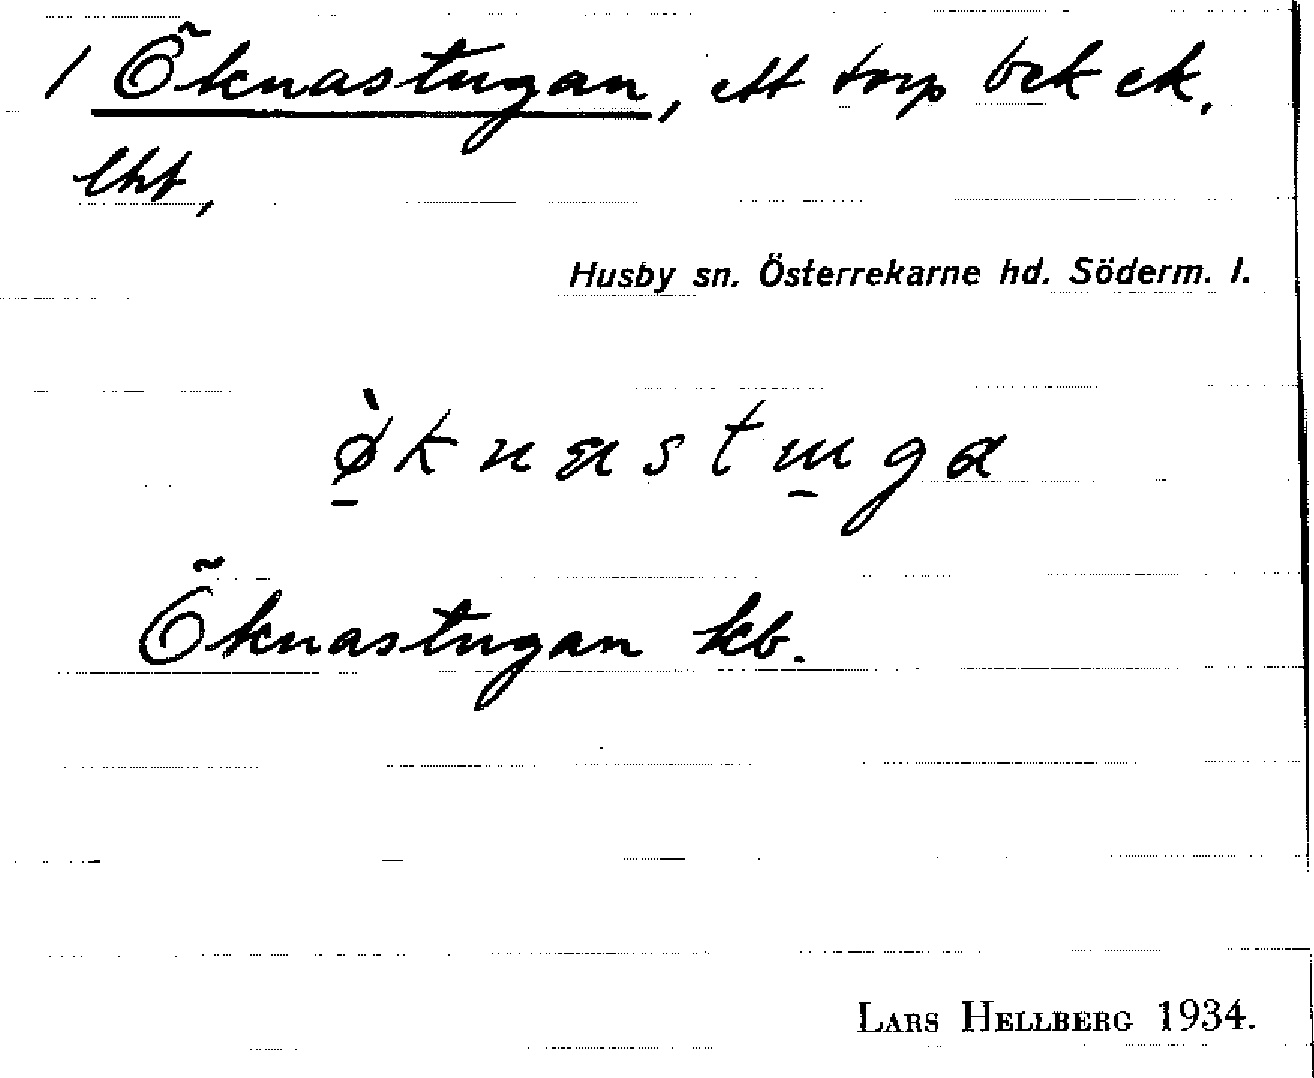 / Öknastugan, ett torp bek ek.
lht,
Husby sn. Österrekarne hd. Söderm. l.
ø̀knastuga
Öknastugan kb.
LARS HELLBERG 1934.